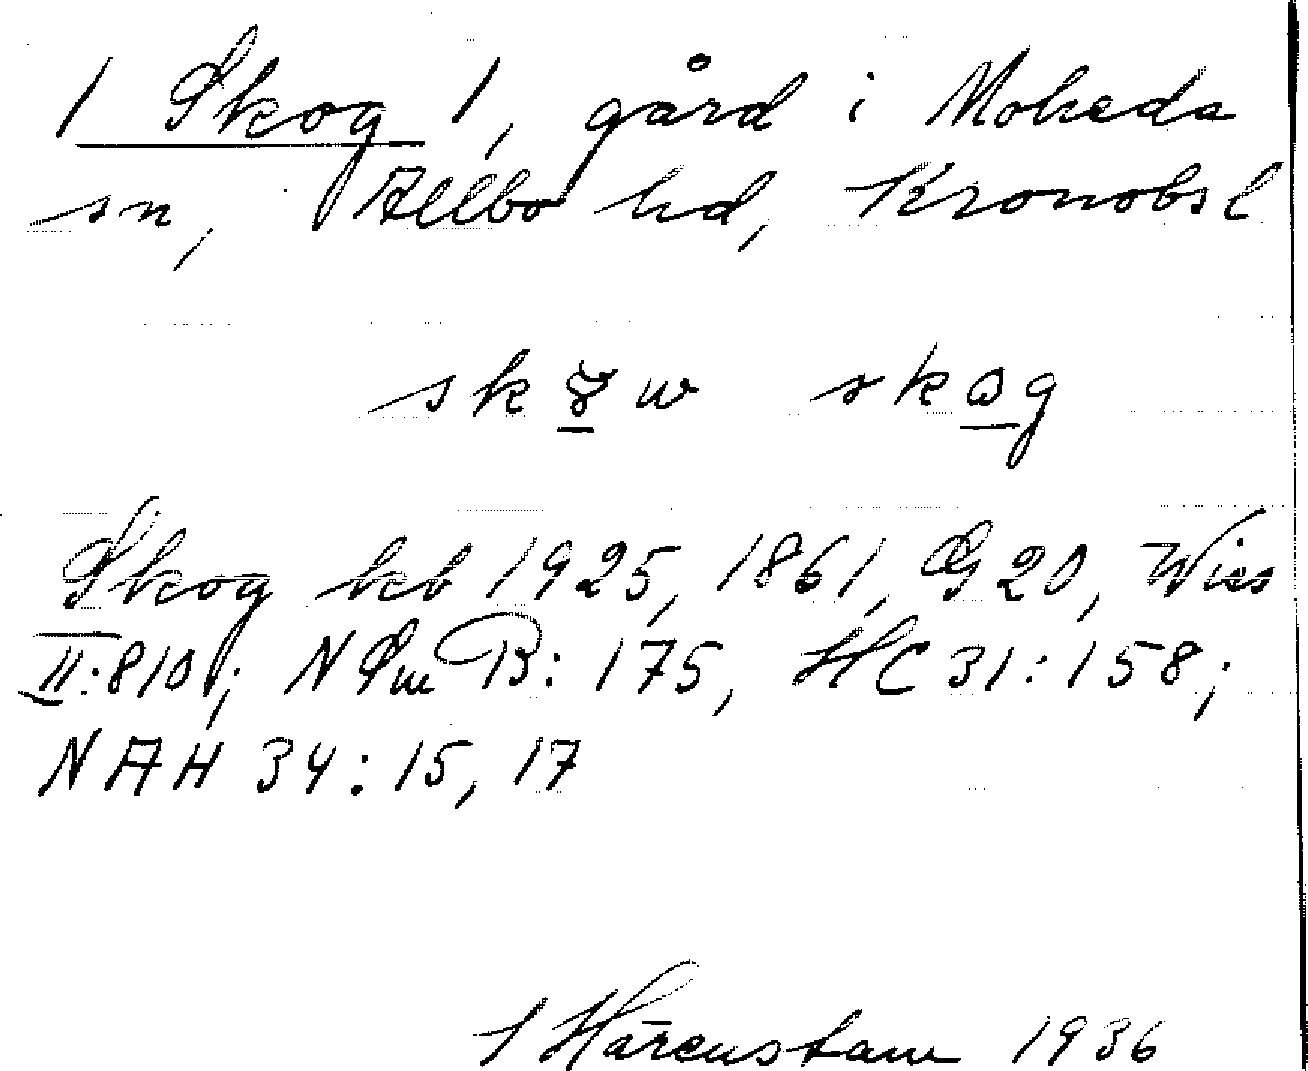 1 Skog 1, gård i Moheda
sn, Allbo hd, Kronobsl
skog
Skog kb 1925, 1861, G 20, Wies
II:810; N Sm B: 175, HC 31:158;
NAH 34:15, 17
Härenstam 1936